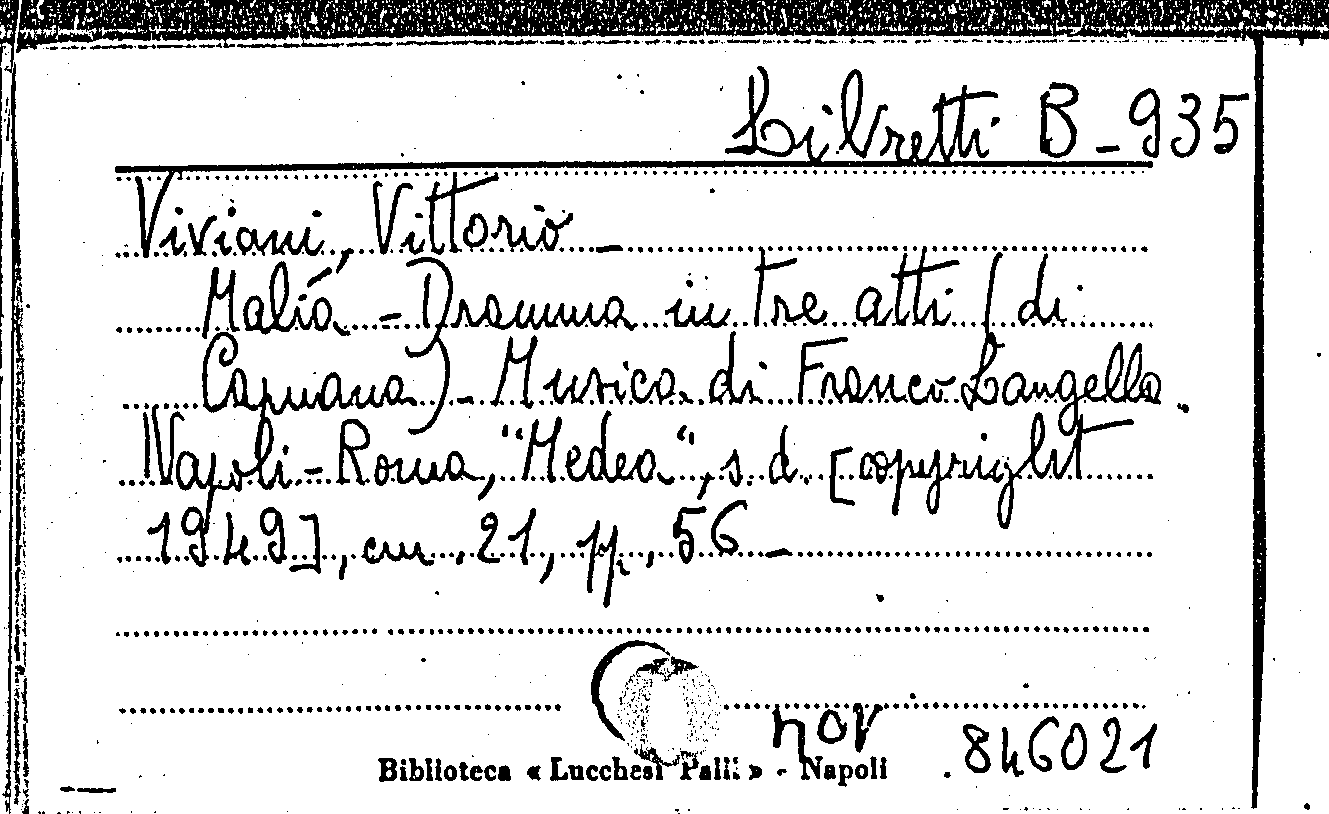 Libretti B-935
Viviani, Vittorio -
Maliá - Dramma in tre atti (di
Capuana) - Musica di Franco Langella.
Napoli - Roma, "Medea", s. d. [copyright
1949], cm. 21, pp. 56 -
nov 846021
Biblioteca « Lucchesi Palli » - Napoli